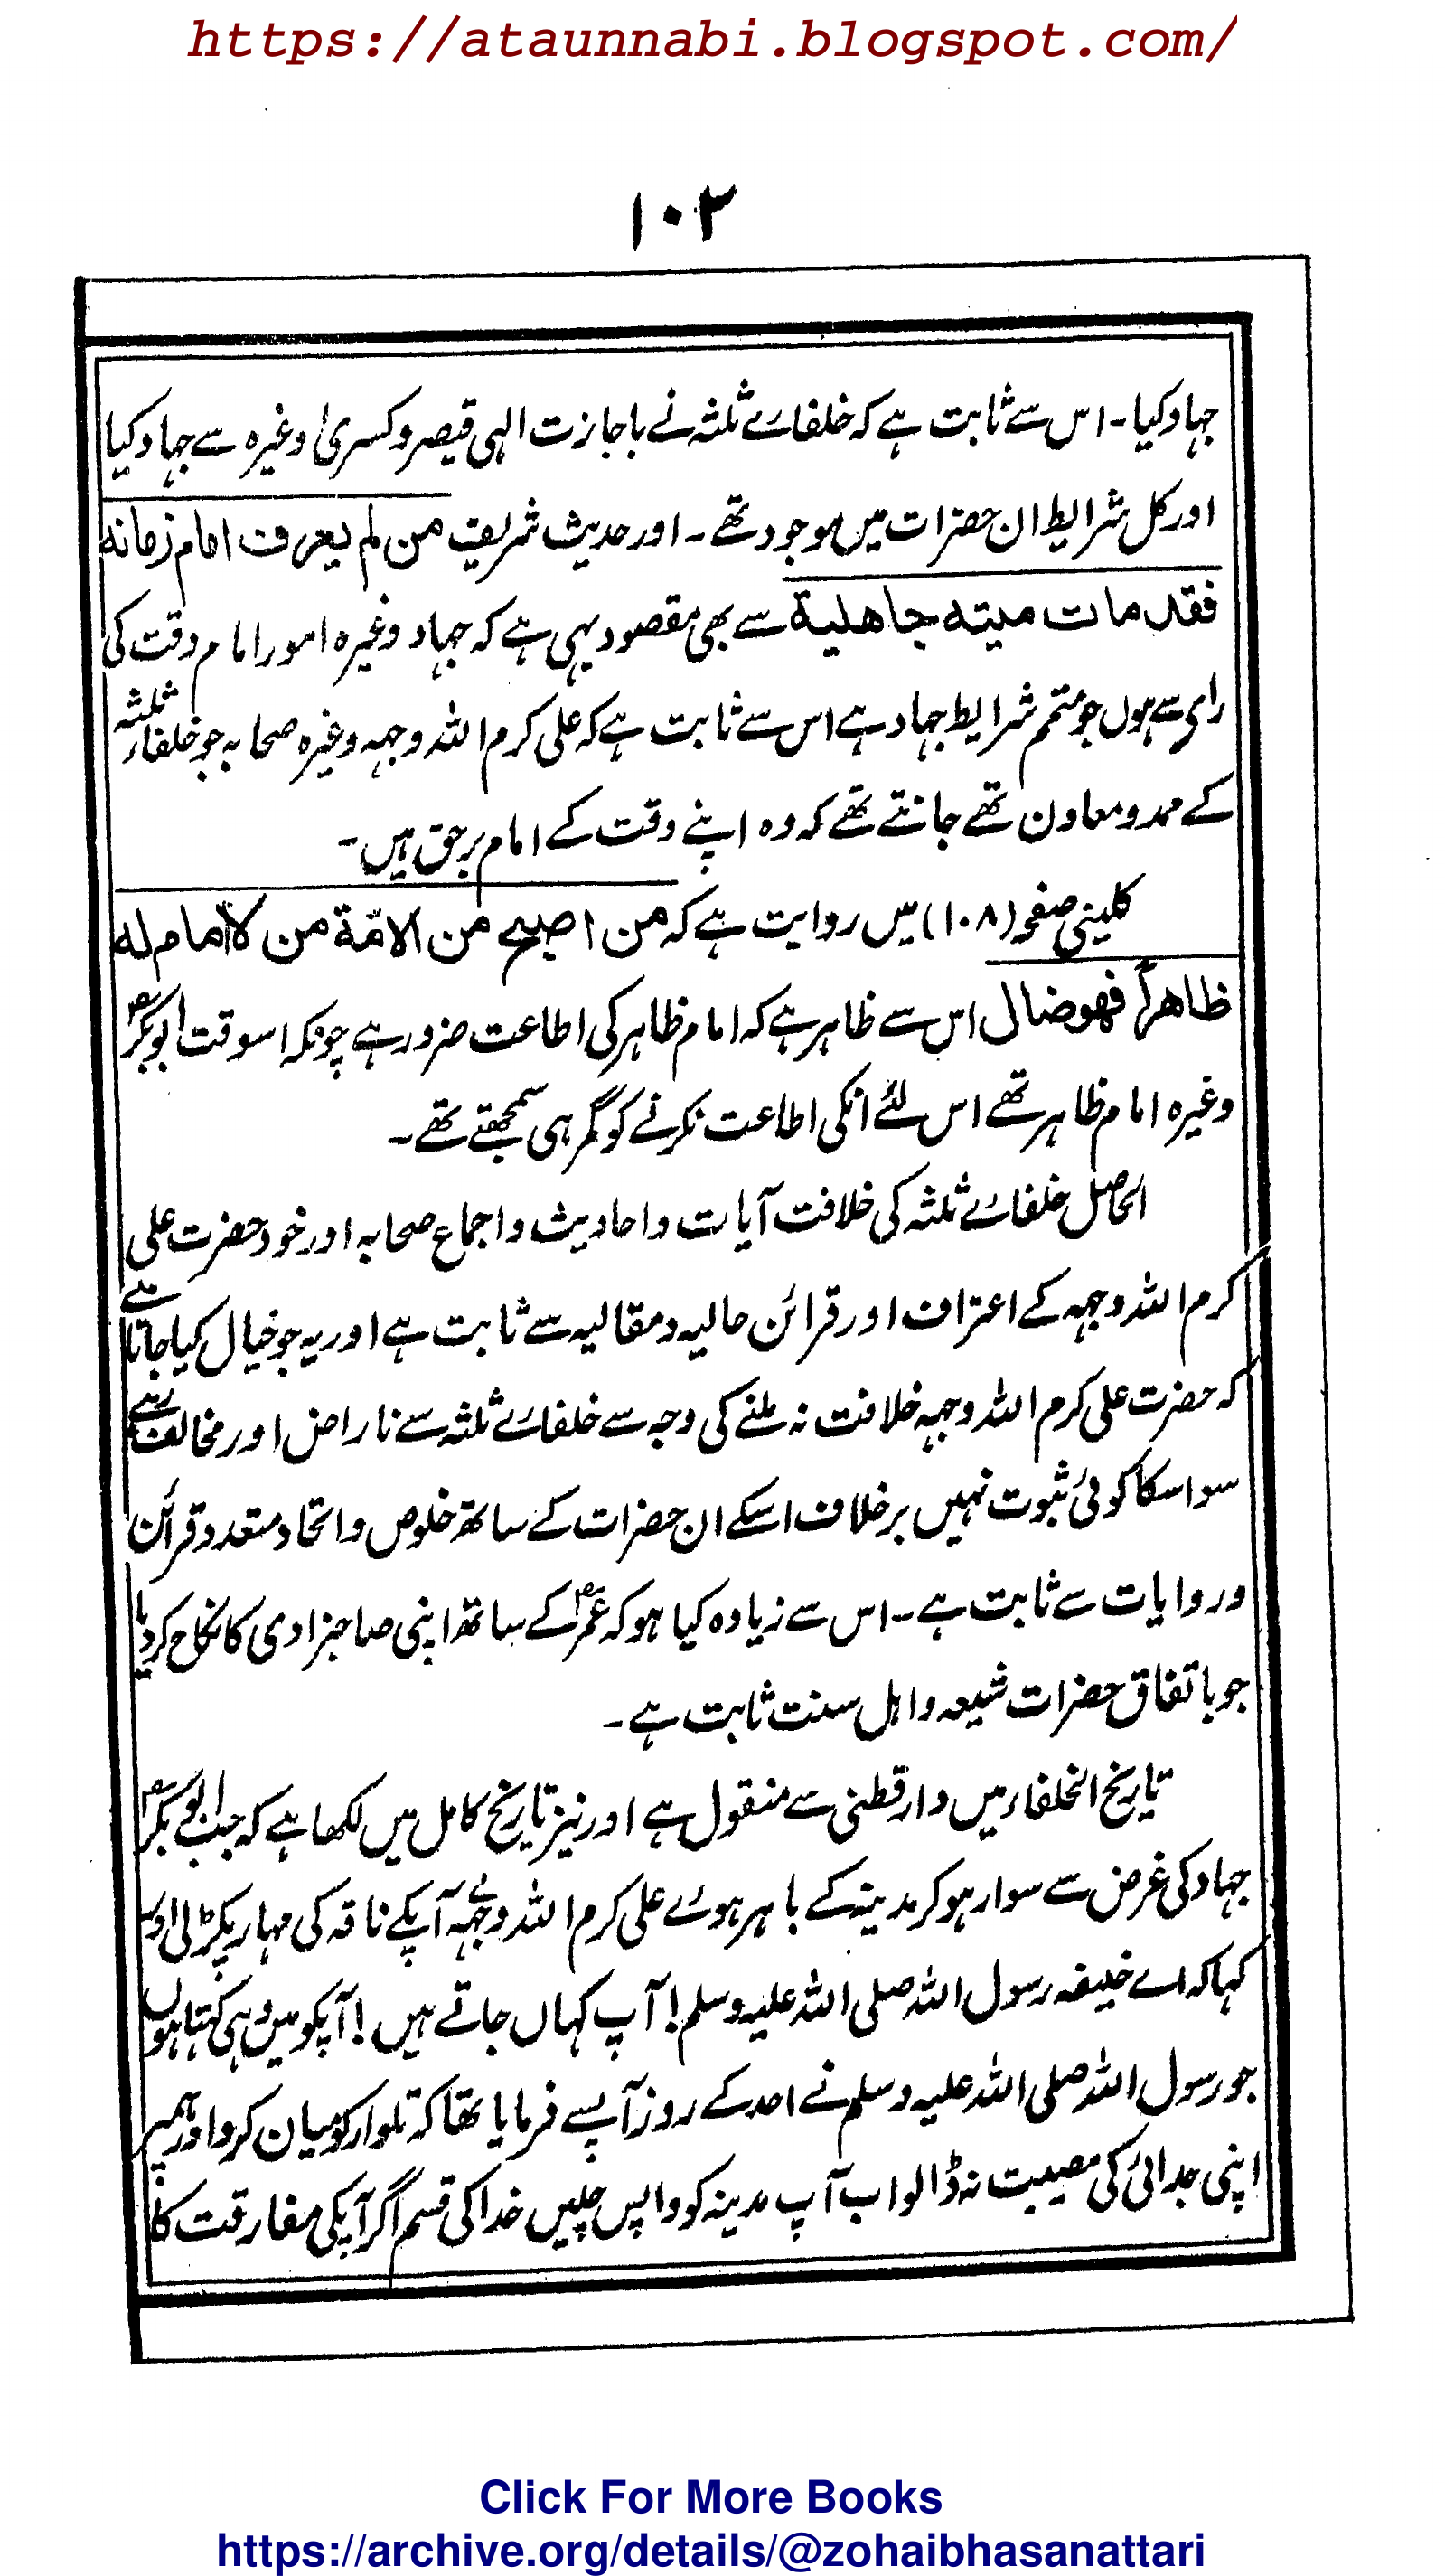 https://ataunnabi.blogspot.com/
۱۰۳
جہاد کیا۔ اس سے ثابت ہے کہ خلفاے ثلثہ نے باجازت الہی قیصر و کسریٰ وغیرہ سے جہاد کیا
اور کل شرایط ان حضرات میں موجود تھے۔ اور حدیث شریف من لم یعرف امام زمانه
فقد مات میتہ جاھلیة سے بھی مقصود یہی ہے کہ جہاد وغیرہ امور امام وقت کی
رای سے ہوں جو متمم شرایط جہاد ہے اس سے ثابت ہے کہ علی کرم اللہ وجہہ وغیرہ صحابہ جو خلفاء ثلثہ
کے ممد و معاون تھے جانتے تھے کہ وہ اپنے وقت کے امام برحق ہیں۔
کلینی صفحہ (۱۰۸) میں روایت ہے کہ من اصبح من الامّة من لا امام له
ظاھراً فھوضال اس سے ظاہر ہے کہ امام ظاہر کی اطاعت ضرور ہے چونکہ اسوقت ابوبکرؓ
وغیرہ امام ظاہر تھے اس لئے انکی اطاعت نکرنے کو گمرہی سمجھتے تھے۔
الحاصل خلفاے ثلثہ کی خلافت آیات و احادیث و اجماع صحابہ اور خود حضرت علی
کرم اللہ وجہہ کے اعتراف اور قرائن حالیہ و مقالیہ سے ثابت ہے اور یہ جو خیال کیا جاتا ہے
کہ حضرت علی کرم اللہ وجہہ خلافت نہ ملنے کی وجہ سے خلفاے ثلثہ سے ناراض اور مخالف رہے
سو اسکا کوئی ثبوت نہیں برخلاف اسکے ان حضرات کے ساتھ خلوص و اتحاد متعدد قرائن
و روایات سے ثابت ہے۔ اس سے زیادہ کیا ہو کہ عمرؓ کے ساتھ اپنی صاحبزادی کا نکاح کردیا
جو باتفاق حضرات شیعہ و اہل سنت ثابت ہے۔
تاریخ الخلفاء میں دارقطنی سے منقول ہے اور نیز تاریخ کامل میں لکھا ہے کہ جب ابوبکرؓ
جہاد کی غرض سے سوار ہوکر مدینہ کے باہر ہوے علی کرم اللہ وجہہ نے آپکے ناقہ کی مہار پکڑ لی اور
کہا کہ اے خلیفہ رسول اللہ صلی اللہ علیہ وسلم! آپ کہاں جاتے ہیں! آپکو میں وہی کہتا ہوں
جو رسول اللہ صلی اللہ علیہ وسلم نے احد کے روز آپسے فرمایا تھا کہ تلوار کو میان کرو اور ہمپر
اپنی جدائی کی مصیبت نہ ڈالو اب آپ مدینہ کو واپس چلیں خدا کی قسم اگر آپکی مفارقت کا
Click For More Books
https://archive.org/details/@zohaibhasanattari